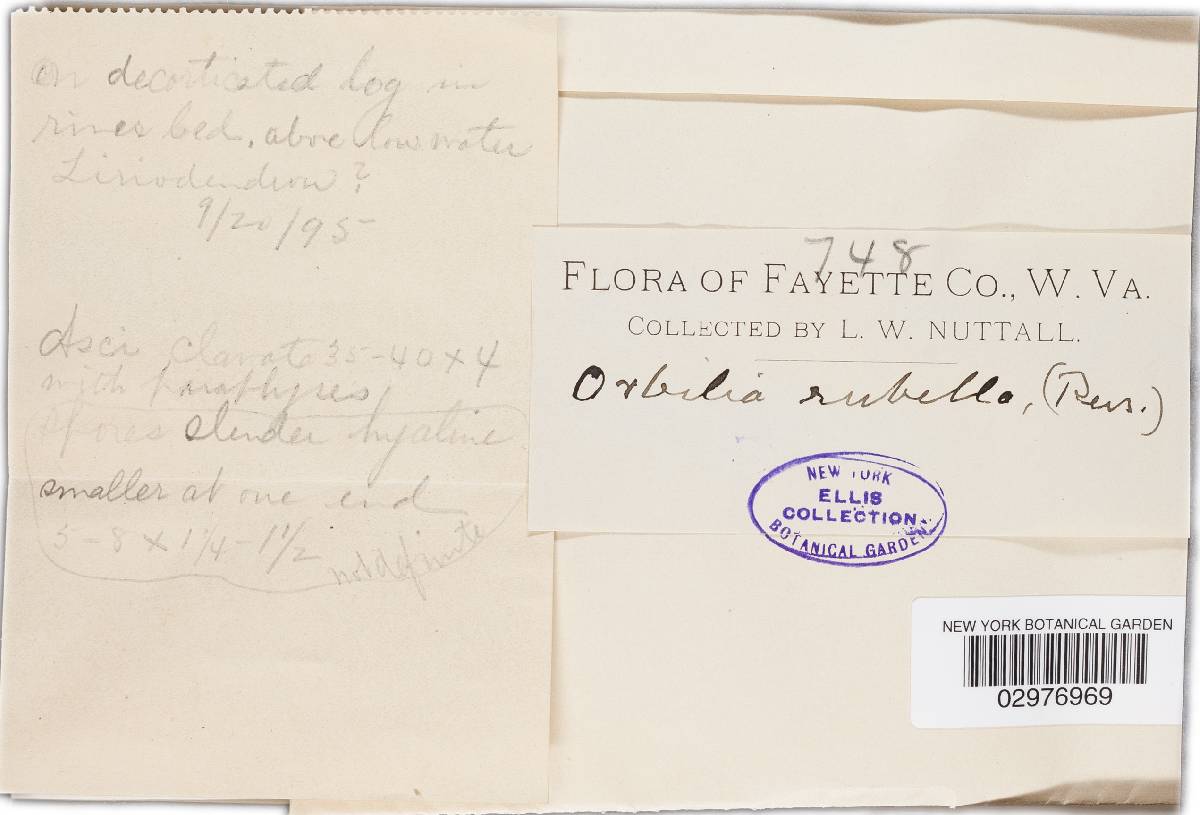 on decorticated log in
river bed, above low water
Liriodendron?
9/20/95
Asci clavate 35-40 x 4
with paraphyses
spores slender hyaline
smaller at one end
5-8 x 1/4-1 1/2
not definite
748
FLORA OF FAYETTE CO., W. VA.
COLLECTED BY L. W. NUTTALL.
Orbilia rubella, (Pers.)
NEW YORK
ELLIS
COLLECTION
BOTANICAL GARDEN
NEW YORK BOTANICAL GARDEN
02976969